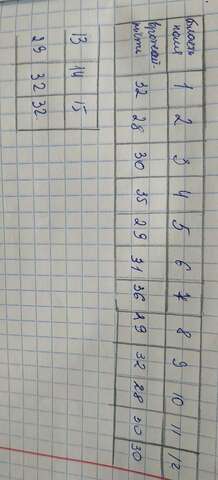 Область 1 2 3 4 5 6 7 8 9 10 11 12
поля
врожай- 32 28 30 35 29 31 36 29 32 28 30 30
ність
13 14 15
29 32 32